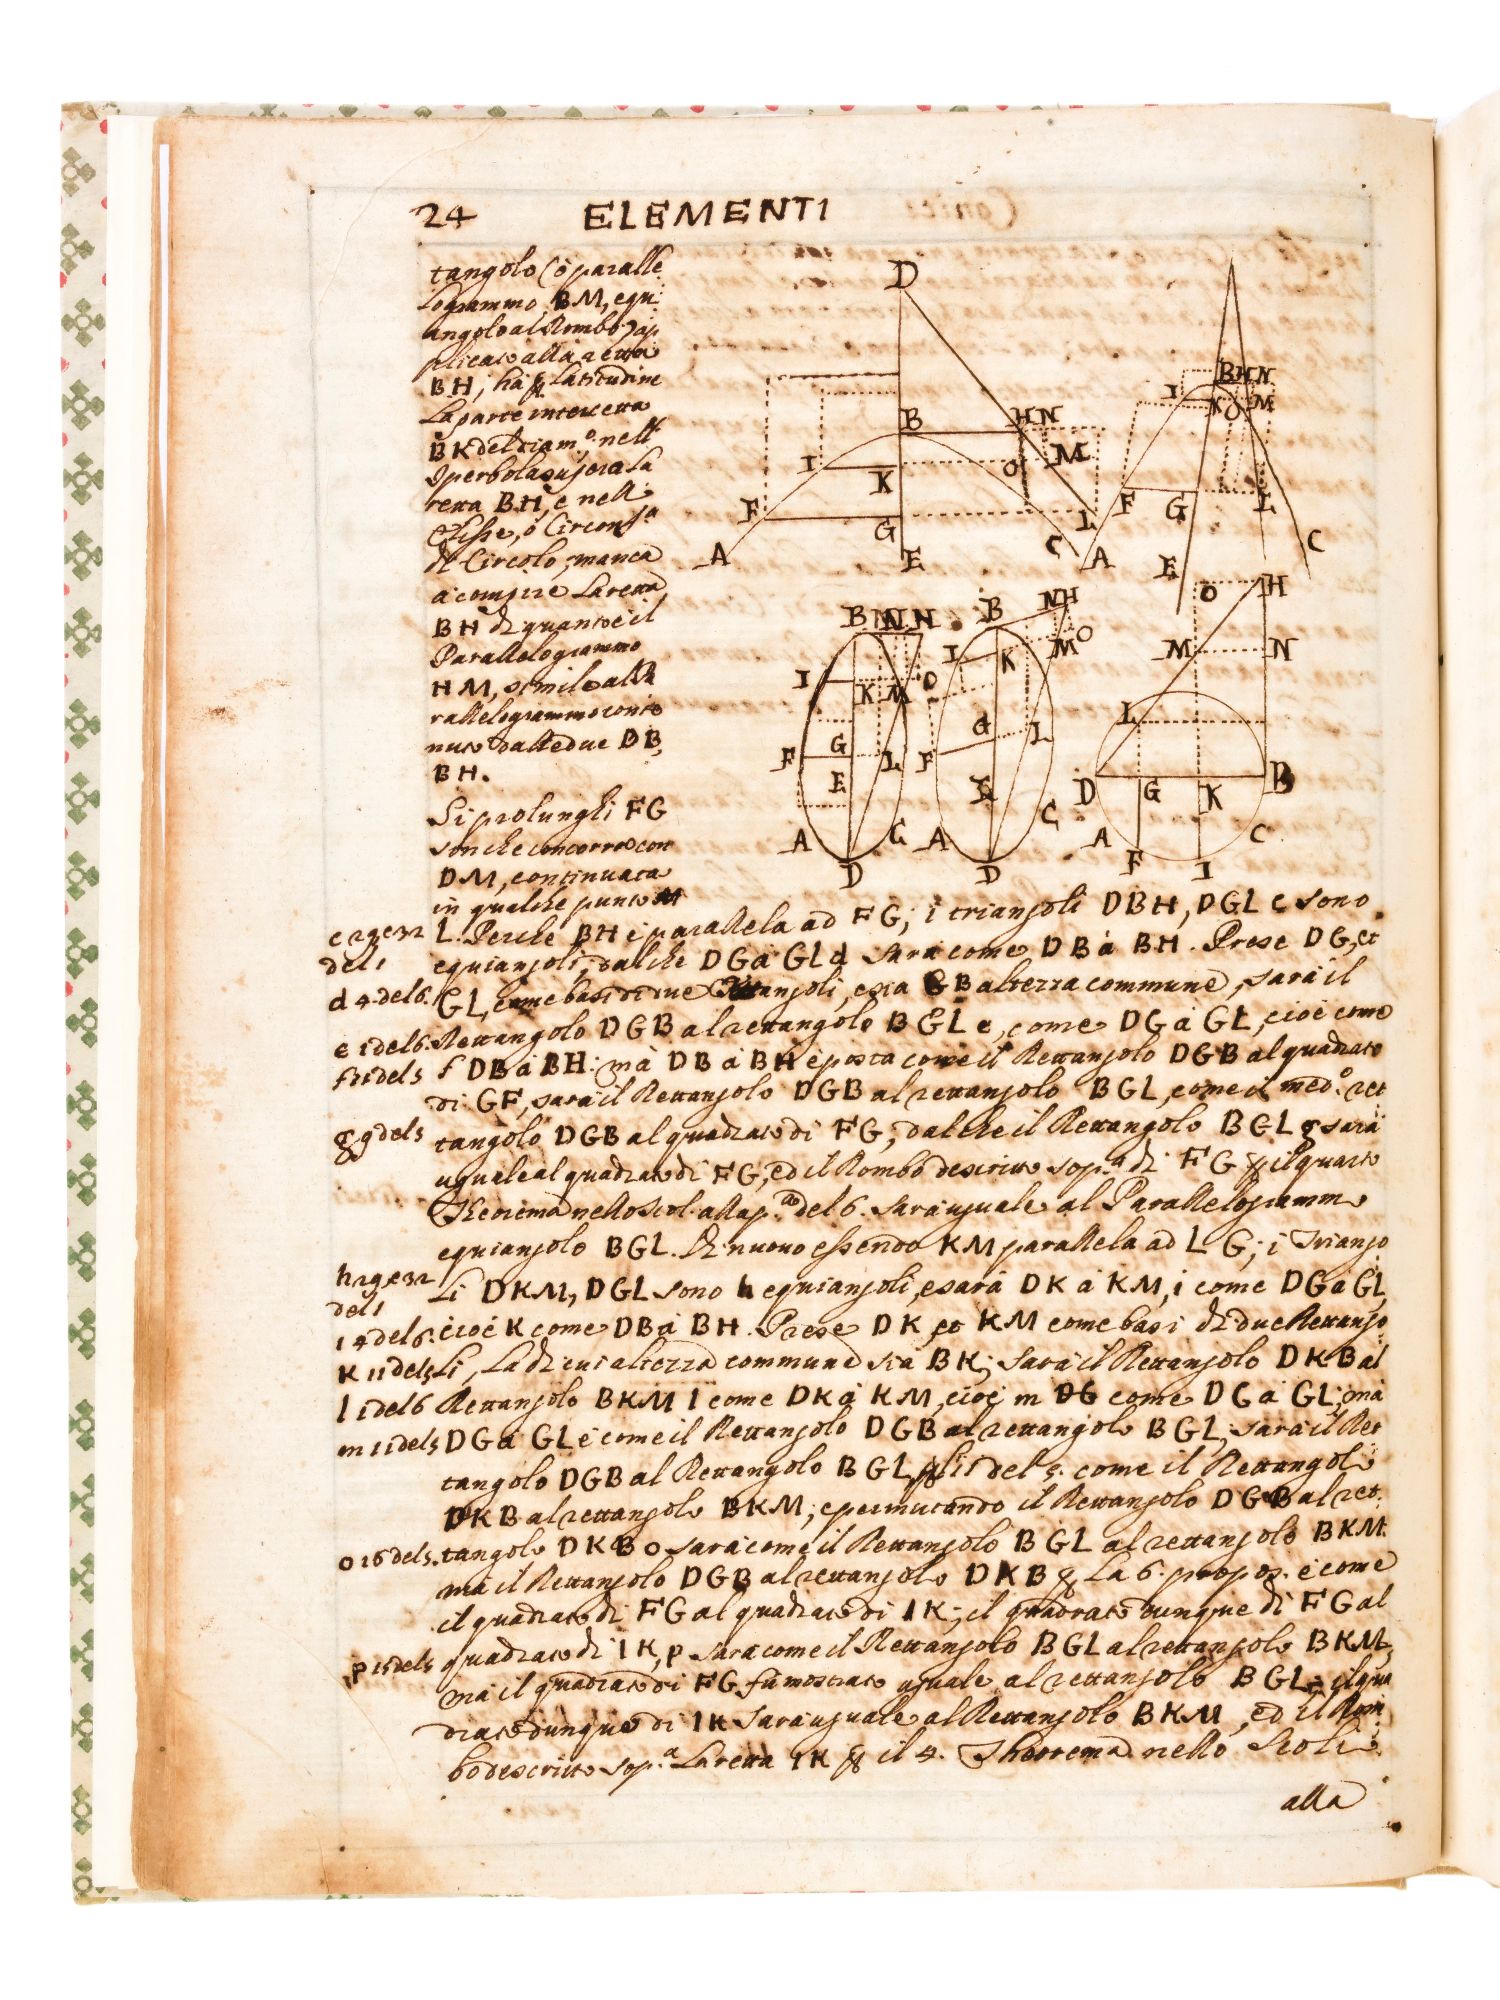 24 ELEMENTI
tangolo (ò paralle
logrammo BM, equi
angolo al Rombo) ap
plicato alla retta
BH, hà ꝑ Latitudine
La parte intercetta
BK del diam.º, nell'
Iperbola supera La
retta BH, e nell'
Elisse, ò Circonf.a
di Circolo, manca
à compire La retta
BH di quanto è il
Parallelogrammo
HM, simile al Pa
rallelogrammo conte
nuto dalle due DB,
BH.
Si prolunghi FG
sin che concorra con
DM, continuata
in qualche punto
L. Perche BH è parallela ad FG; i triangoli DBH, DGL c sono
equiangoli, dalche DG à GL d sarà come DB à BH. Prese DG, et
GL, come basi di due Rettangoli, e sia GB altezza commune, sarà il
Rettangolo DGB al rettangolo BGL e, come DG à GL, cioè come
f DB à BH: mà DB à BH è posta come il Rettangolo DGB al quadrato
di GF, sarà il Rettangolo DGB al rettangolo BGL, come il med.º ret
tangolo DGB al quadrato di FG; dalche il Rettangolo BGL g sarà
uguale al quadrato di FG, ed il Rombo descritto sop.a di FG ꝑ il quarto
Theorema nello Scol. alla p.a del 6. sarà uguale al Parallelogrammo
equiangolo BGL. Di nuovo essendo KM parallela ad LG; i Triango
li DKM, DGL sono h equiangoli, e sarà DK à KM, i come DG à GL,
cioè K come DB à BH. Prese DK et KM come basi di due Rettango
li, La di cui altezza commune sia BK; sarà il Rettangolo DKB al
Rettangolo BKM l come DK à KM, cioè m come DG à GL; mà
DG à GL è come il Rettangolo DGB al rettangolo BGL; sarà il Ret
tangolo DGB al Rettangolo BGL, ꝑ li 11 del 5. come il Rettangolo
DKB al rettangolo BKM; e permutando il Rettangolo DGB al ret
tangolo DKB o sarà come il Rettangolo BGL al rettangolo BKM.
mà il Rettangolo DGB al rettangolo DKB ꝑ La 6. propos. è come
il quadrato di FG al quadrato di IK; il quadrato dunque di FG al
quadrato di IK, p sarà come il Rettangolo BGL al rettangolo BKM,
mà il quadrato di FG fù mostrato uguale al rettangolo BGL; il qua
drato dunque di IK sarà uguale al Rettangolo BKM, ed il Rom
bo descritto sop.a La retta IK ꝑ il 4. Theorema nello Scoli
alla
c 29 e 32
del 1
d 4. del 6.
e 1 del 6.
f 11 del 5
g 9 del 5
h 29 e 32
del 1
i 4 del 6.
K 11 del 5
l 1 del 6
m 11 del 5
o 16 del 5.
p 15 del 5
D
B
H N
I
K
O
M
F
G
L
A
E
C
B H N
I
K O M
F
G
L
A
E
C
B N H
I
K M O
F
G
L
E
A
C
D
B
N H
I
K
M O
G
L
F
E
A
C
D
O
H
M
N
L
D
G
K
B
A
F
I
C